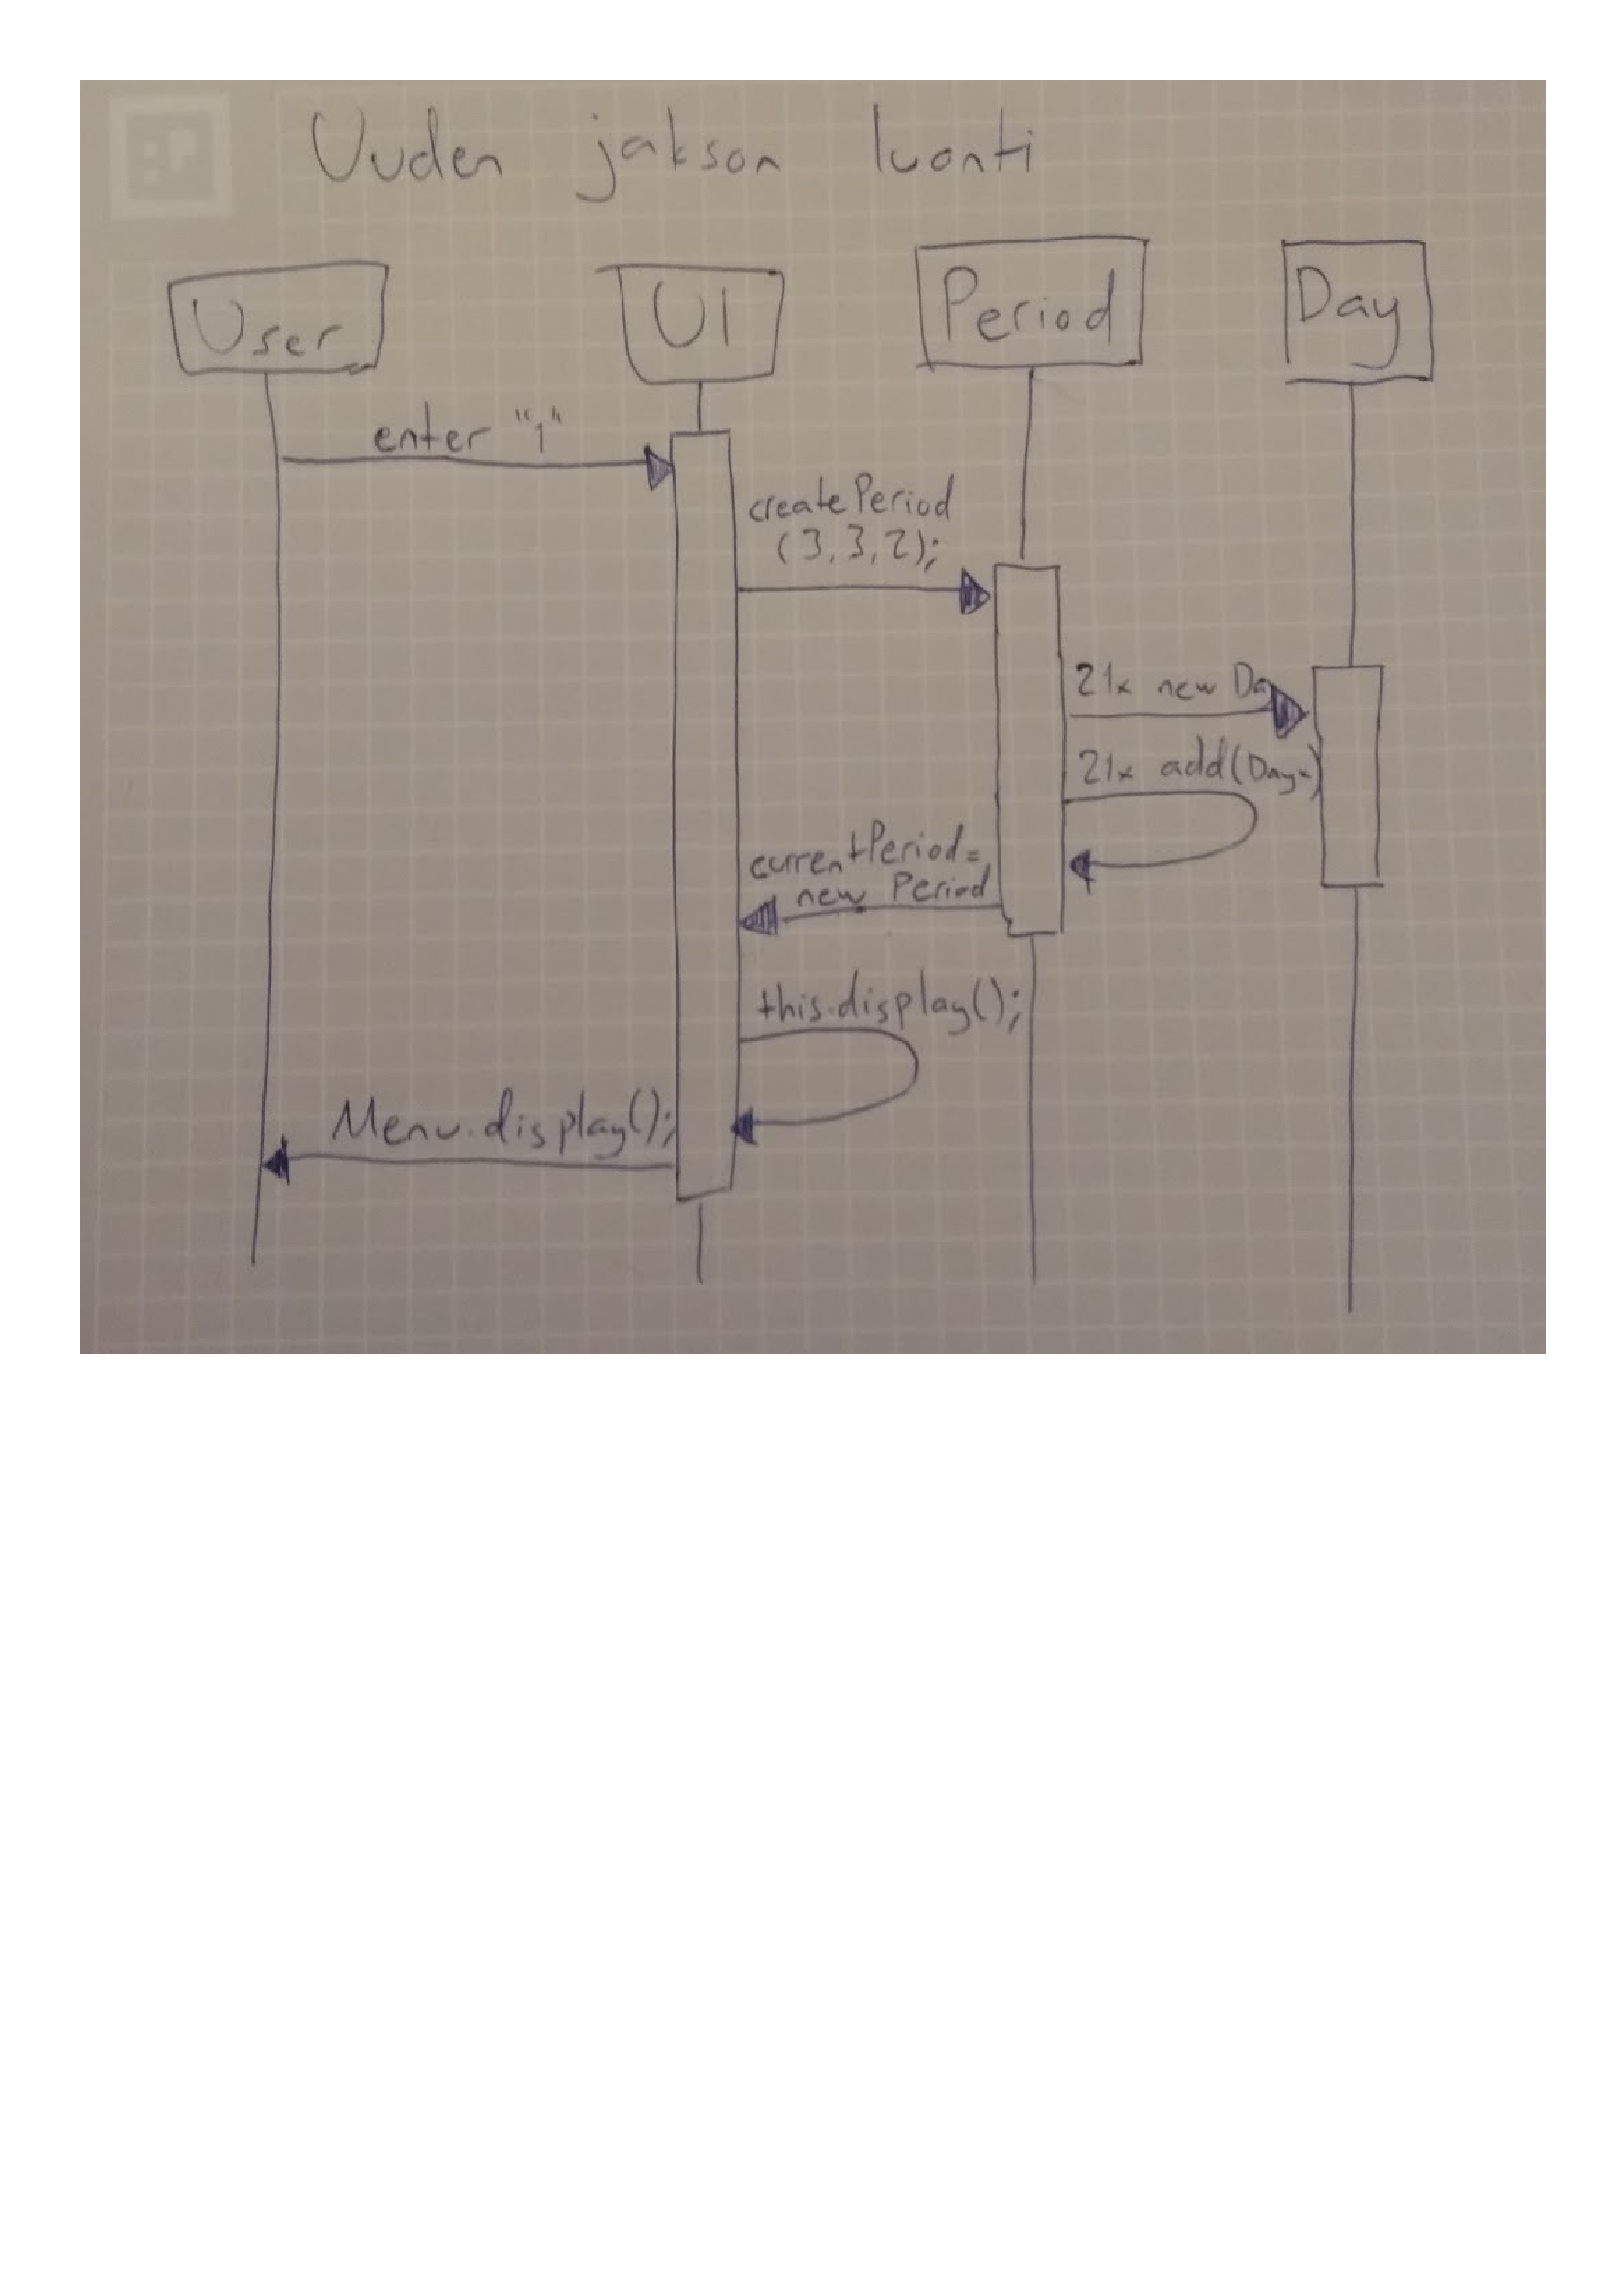 Uuden jakson luonti
User
UI
Period
Day
enter "1"
createPeriod
(3,3,2);
21x new Day
21x add(Dayx)
currentPeriod=
new Period
this.display();
Menu.display();